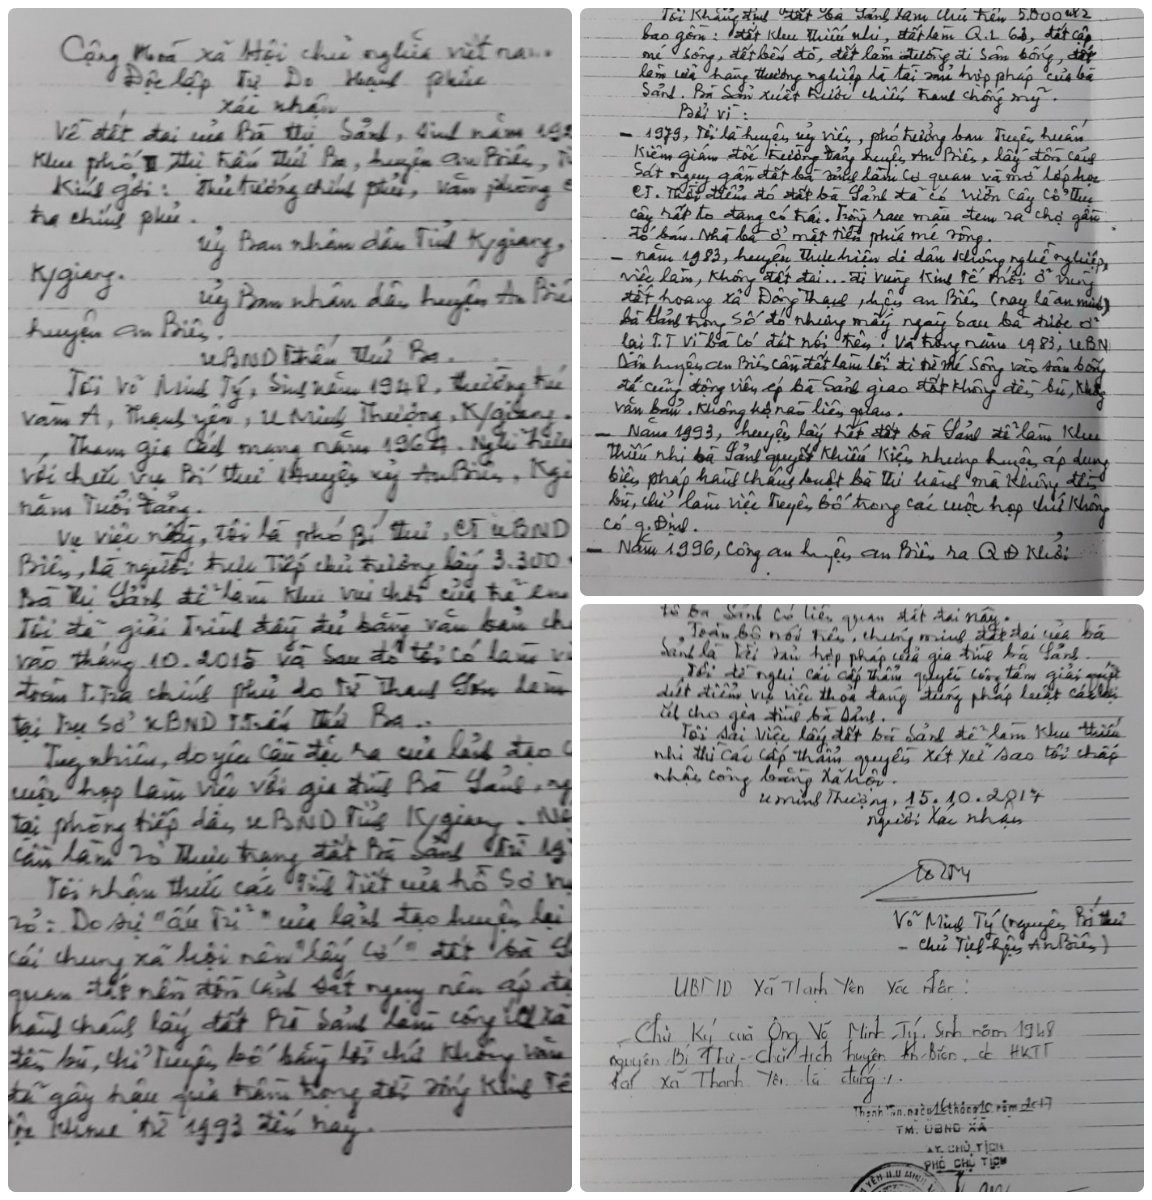 Cộng hoà xã hội chủ nghĩa việt nam
Độc lập Tự Do Hạnh phúc
xác nhận
Về đất đai của Bà thị Sảnh, sinh năm 192
Khu phố II, thị trấn thứ Ba, huyện an Biên, T
Kính gởi: Thủ tướng chính phủ, văn phòng
tra chính phủ.
Uỷ Ban nhân dân Tỉnh K/giang,
K/giang.
Uỷ Ban nhân dân huyện An Biê
huyện an Biên.
UBND T.trấn thứ Ba.
Tôi Võ Minh Tý, Sinh năm 1948, thường trú
vàm A, Thạnh yên, U Minh Thượng, K/giang.
Tham gia Cách mạng năm 1964. Nghỉ hưu
với chức vụ Bí thư Huyện uỷ An Biên, Kgi
năm Tuổi Đảng.
Vụ việc này, tôi là phó Bí thư, CT UBND
Biên, là người trực Tiếp chủ trương lấy 3.300
Bà thị Sảnh để làm khu vui chơi của trẻ em
Tôi đã giải Trình đầy đủ bằng văn bản ch
vào tháng 10.2015 và sau đó tôi có làm vi
đoàn T.Tra chính phủ do Lê Thanh Sơn làm
tại Trụ Sở UBND T.trấn thứ Ba.
Tuy nhiên, do yêu cầu đặt ra của lãnh đạo
cuộc họp làm việc với gia đình Bà Sảnh, ng
tại phòng tiếp dân UBND Tỉnh K/giang. Nê
cần làm rõ thực trạng đất Bà Sảnh Từ 19
Tôi nhận thức các Tình Tiết của hồ Sơ vụ
rõ: Do sự "ấu trĩ" của lãnh đạo huyện lại
cái chung xã hội nên "lấy cớ" đất bà S
quan đất nền đồn Cảnh sát ngụy nên áp đặ
hành chánh lấy đất Bà Sảnh làm công ích xã
đền bù, chỉ Tuyên bố bằng lời chứ không văn
đã gây hậu quả trầm trọng đời sống Kinh Tế
từ 1993 đến nay.
Tôi Khẳng định đất bà Sảnh làm chủ trên 5.000 m2
bao gồm: đất khu thiếu nhi, đất làm Q.L 63, đất cặp
mé sông, đất bến đò, đất làm đường đi sân bóng, đất
làm cửa hàng thương nghiệp là tài sản hợp pháp của bà
Sảnh. Bà Sản xuất trước chiến tranh chống mỹ.
Bởi vì:
- 1979, Tôi là huyện uỷ viên, phó trưởng ban Tuyên huấn
Kiêm giám đốc trường Đảng huyện An Biên, lấy đồn cảnh
Sát ngụy gần đất bà Sảnh làm cơ quan và mở lớp học
CT. Thời điểm đó đất bà Sảnh đã có vườn cây cổ thụ
cây rất to đang có trái. Trồng rau màu đem ra chợ gần
đó bán. Nhà bà ở mặt tiền phía mé sông.
- năm 1983, huyện thực hiện di dân không nghề nghiệp,
việc làm, không đất đai... đi vùng kinh tế mới ở vùng
đất hoang xã Đông Thạnh, huyện an Biên (nay là an minh)
bà Sảnh trong số đó nhưng mấy ngày sau bà được ở
lại T.T vì bà có đất nói trên. Và trong năm 1983, UBN
Dân huyện an Biên cần đất làm lối đi từ mé Sông vào sân bóng
đá cũng động viên bà Sảnh giao đất không đền bù, không
văn bản. Không hộ nào liên quan.
- Năm 1993, huyện lấy hết đất bà Sảnh để làm khu
thiếu nhi bà Sảnh quyết khiếu kiện nhưng huyện áp dụng
biện pháp hành chánh buộc bà thi hành mà không đền
bù, chỉ làm việc Tuyên bố trong các cuộc họp chứ không
có q.định.
- Năm 1996, Công an huyện an Biên ra QĐ khởi
tố bà Sảnh có liên quan đất đai này.
Toàn bộ nói trên, chứng minh đất đai của bà
Sảnh là Tài sản hợp pháp của gia đình bà Sảnh.
Tôi đề nghị các cấp thẩm quyền công tâm giải quyết
dứt điểm vụ việc thoả đáng đúng pháp luật có lợi
ích cho gia đình bà Sảnh.
Tôi sai việc lấy đất bà Sảnh để làm khu thiếu
nhi thì các cấp thẩm quyền xét xử sao tôi chấp
nhận công bằng xã hội.
U minh Thượng, 15.10.2017
người xác nhận
Võ Minh Tý (nguyên Bí thư
- Chủ Tịch huyện An Biên)
UBND Xã Thạnh Yên Xác Nhận:
Chữ Ký của Ông Võ Minh Tý, Sinh năm 1948
nguyên Bí Thư - Chủ tịch huyện An Biên, có HKTT
tại xã Thạnh Yên là đúng./.
Thạnh Yên, ngày 16 tháng 10 năm 2017
TM. UBND XÃ
KT. CHỦ TỊCH
PHÓ CHỦ TỊCH